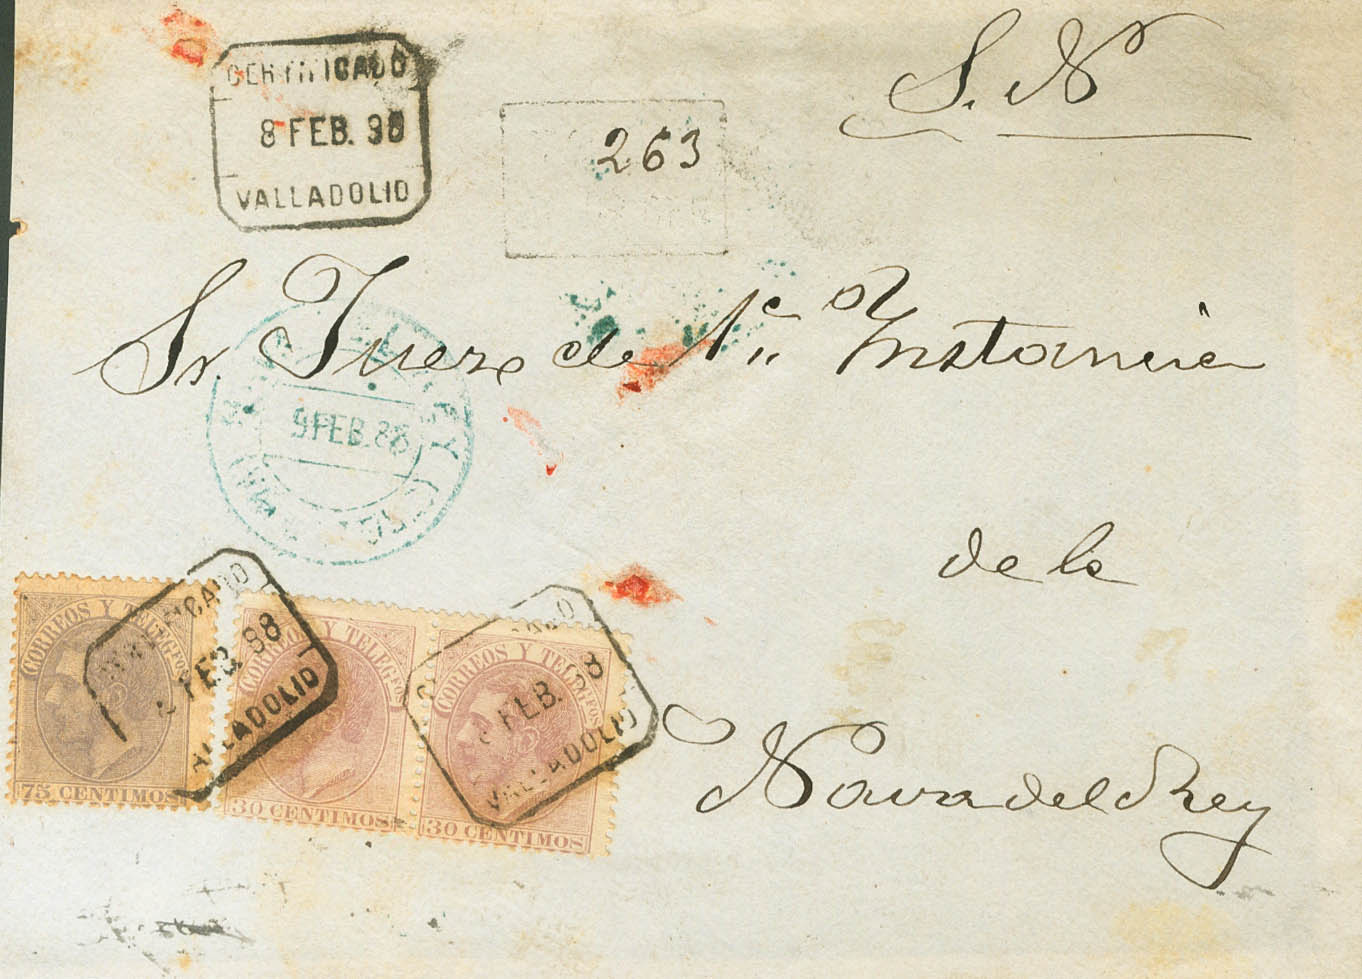 S. N
CERTIFICADO
8 FEB. 98
VALLADOLID
263
Sr. Juez de 1ª Instancia
9 FEB. 88
de la
Nava del Rey
CERTIFICADO
FEB. 98
VALLADOLID
FEB. 98
VALLADOLID
CORREOS Y TELEGFOS
75 CENTIMOS
CORREOS Y TELEGFOS
30 CENTIMOS
CORREOS Y TELEGFOS
30 CENTIMOS